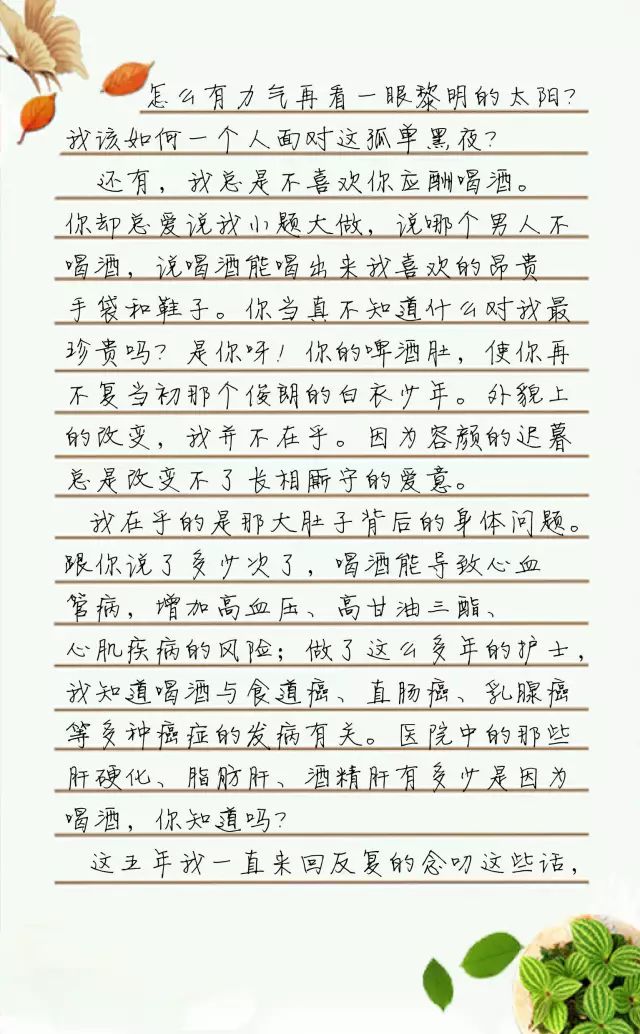 怎么有力气再看一眼黎明的太阳?
我该如何一个人面对这孤单黑夜?
还有，我总是不喜欢你应酬喝酒。
你却总爱说我小题大做，说哪个男人不
喝酒，说喝酒能喝出来我喜欢的昂贵
手袋和鞋子。你当真不知道什么对我最
珍贵吗? 是你呀! 你的啤酒肚，使你再
不复当初那个俊朗的白衣少年。外貌上
的改变，我并不在乎。因为容颜的迟暮
总是改变不了长相厮守的爱意。
我在乎的是那大肚子背后的身体问题。
跟你说了多少次了，喝酒能导致心血
管病，增加高血压、高甘油三酯、
心肌疾病的风险；做了这么多年的护士，
我知道喝酒与食道癌、直肠癌、乳腺癌
等多种癌症的发病有关。医院中的那些
肝硬化、脂肪肝、酒精肝有多少是因为
喝酒，你知道吗?
这五年我一直来回反复的念叨这些话，